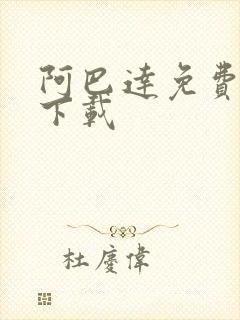 阿巴達免費
下載
杜慶偉